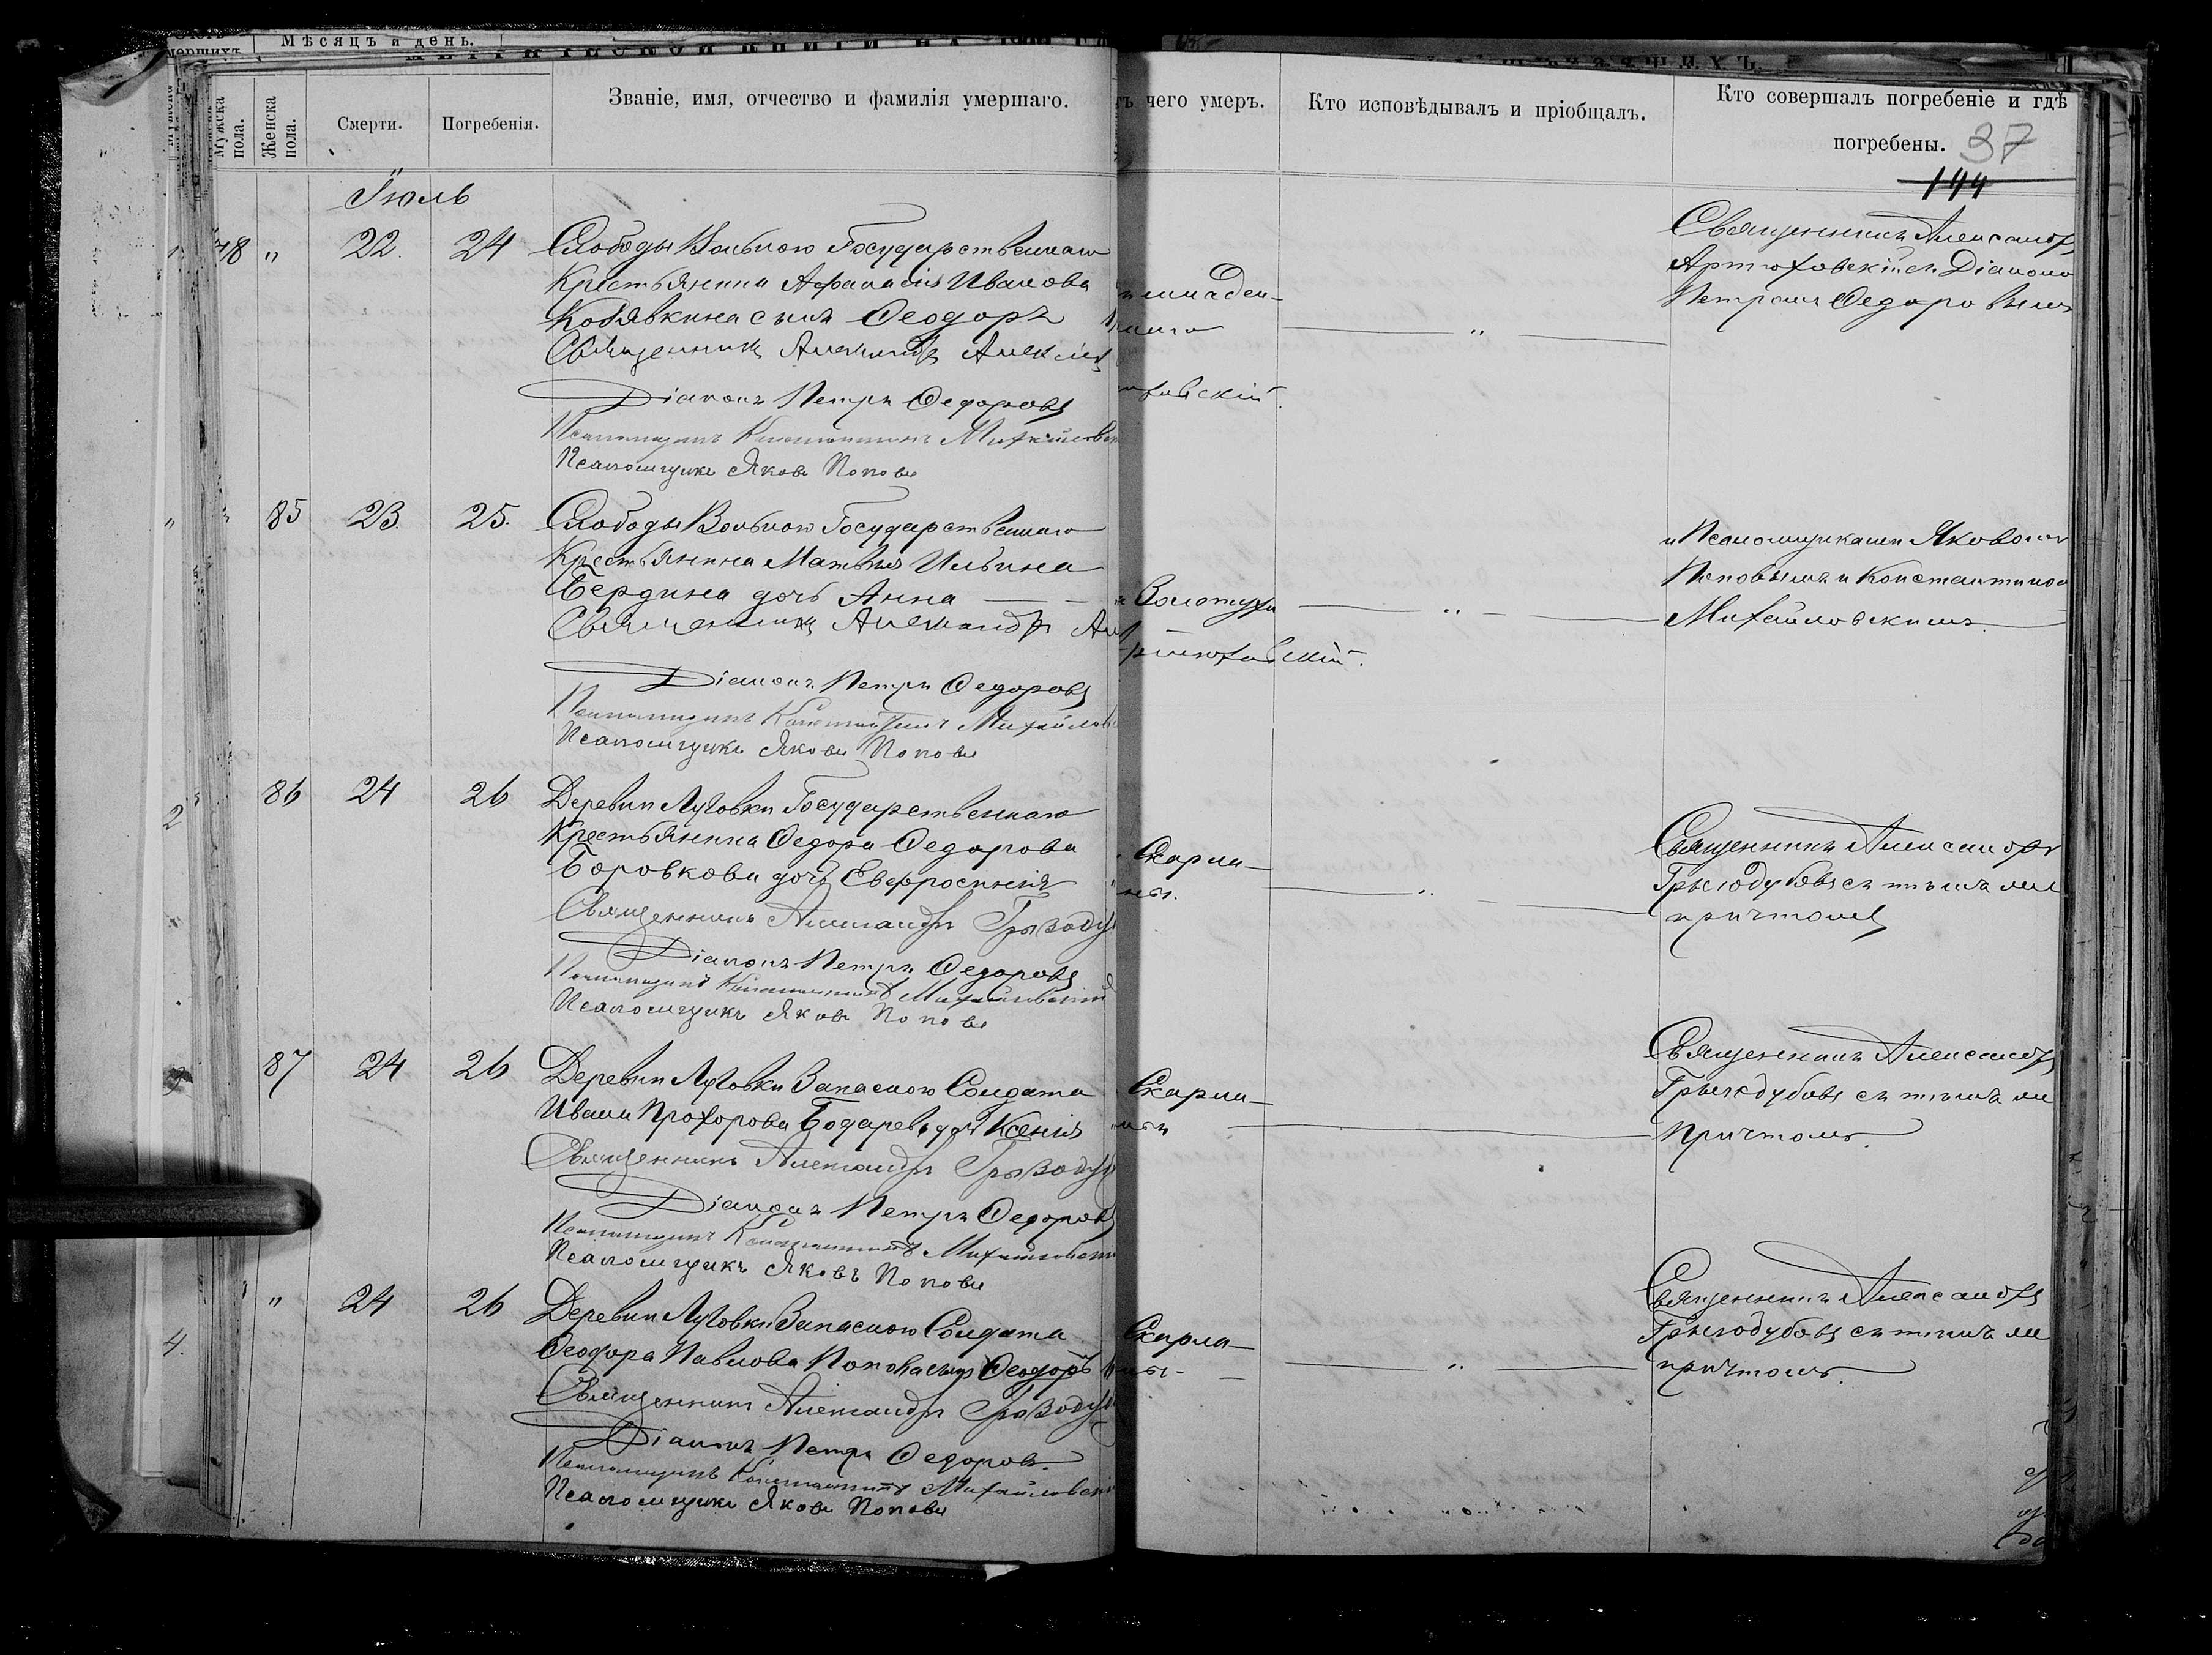 Мѣсяцъ и день.
Мужска пола.
Женска пола.
Смерти.
Погребенія.
Званіе, имя, отчество и фамилія умершаго.
чего умеръ.
Кто исповѣдывалъ и пріобщалъ.
Кто совершалъ погребеніе и гдѣ
погребены.
37
144
Іюль
78 " 22. 24 Слободы Вольною Государственнаго
Крестьянина Афанасія Иванова
Кобявкина сынъ Ѳеодоръ
Священникъ Александръ Алексѣй
Діаконъ Петръ Ѳедоровъ
Псаломщикъ Константинъ Михайловск
Псаломщикъ Яковъ Поповъ
Священникъ Александръ
Артюховскій съ Діакономъ
Петромъ Ѳедоровымъ
85 23. 25. Слободы Вольною Государственнаго
Крестьянина Матвѣя Ильина
Бердина дочь Анна
Священникъ Александръ
Діаконъ Петръ Ѳедоровъ
Псаломщикъ Константинъ Михайловс
Псаломщикъ Яковъ Поповъ
Золотухи
и Псаломщиками Яковомъ
Поповымъ и Константиномъ
Михайловскимъ.
86 24 26 Деревни Луговки Государственнаго
Крестьянина Ѳедора Ѳедорова
Боровкова дочь Евфросинія
Священникъ Александръ
Діаконъ Петръ Ѳедоровъ
Псаломщикъ Константинъ Михайловскій
Псаломщикъ Яковъ Поповъ
Скарла-
ны.
Священникъ Александръ
съ тѣмъ же
причтомъ
87 24 26 Деревни Луговки Запасною Солдата
Ивана Прохорова Бодарева дочь Ксенія
Священникъ Александръ
Діаконъ Петръ Ѳедоровъ
Псаломщикъ Константинъ Михайловскій
Псаломщикъ Яковъ Поповъ
Скарла-
Священникъ Александръ
съ тѣмъ же
причтомъ.
" 24 26 Деревни Луговки Запасною Солдата
Ѳеодора Павлова Попова сынъ Ѳеодоръ
Священникъ Александръ
Діаконъ Петръ Ѳедоровъ.
Псаломщикъ Константинъ Михайловскі
Псаломщикъ Яковъ Поповъ
Скарла-
Священникъ Александръ
съ тѣмъ же
причтомъ.